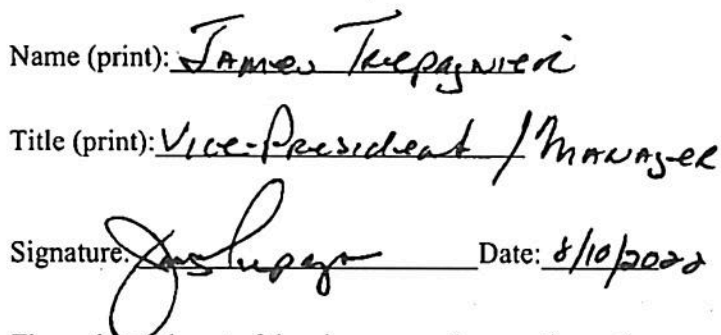 Name (print): James Trepagnier
Title (print): Vice-President / Manager
Signature: Date: 8/10/2022